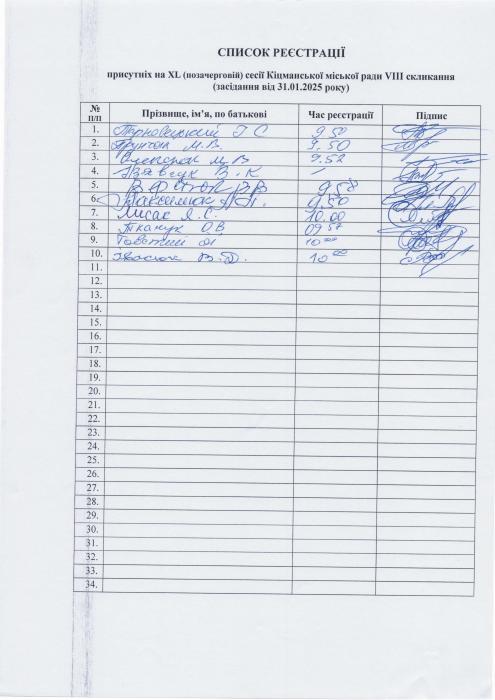 СПИСОК РЕЄСТРАЦІЇ
присутніх на XL (позачерговій) сесії Кіцманської міської ради VIII скликання
(засідання від 31.01.2025 року)
№ п/п Прізвище, ім’я, по батькові Час реєстрації Підпис
1. Г С 9 50
2. М.В. 9.50
3. М В 9.52
4. В.К
5. 9.58
6. 9.50
7. Лисак Я.С. 10.00
8. Ткачук О.В 09 57
9. 10 00
10. В.Д. 10 00
11.
12.
13.
14.
15.
16.
17.
18.
19.
20.
21.
22.
23.
24.
25.
26.
27.
28.
29.
30.
31.
32.
33.
34.